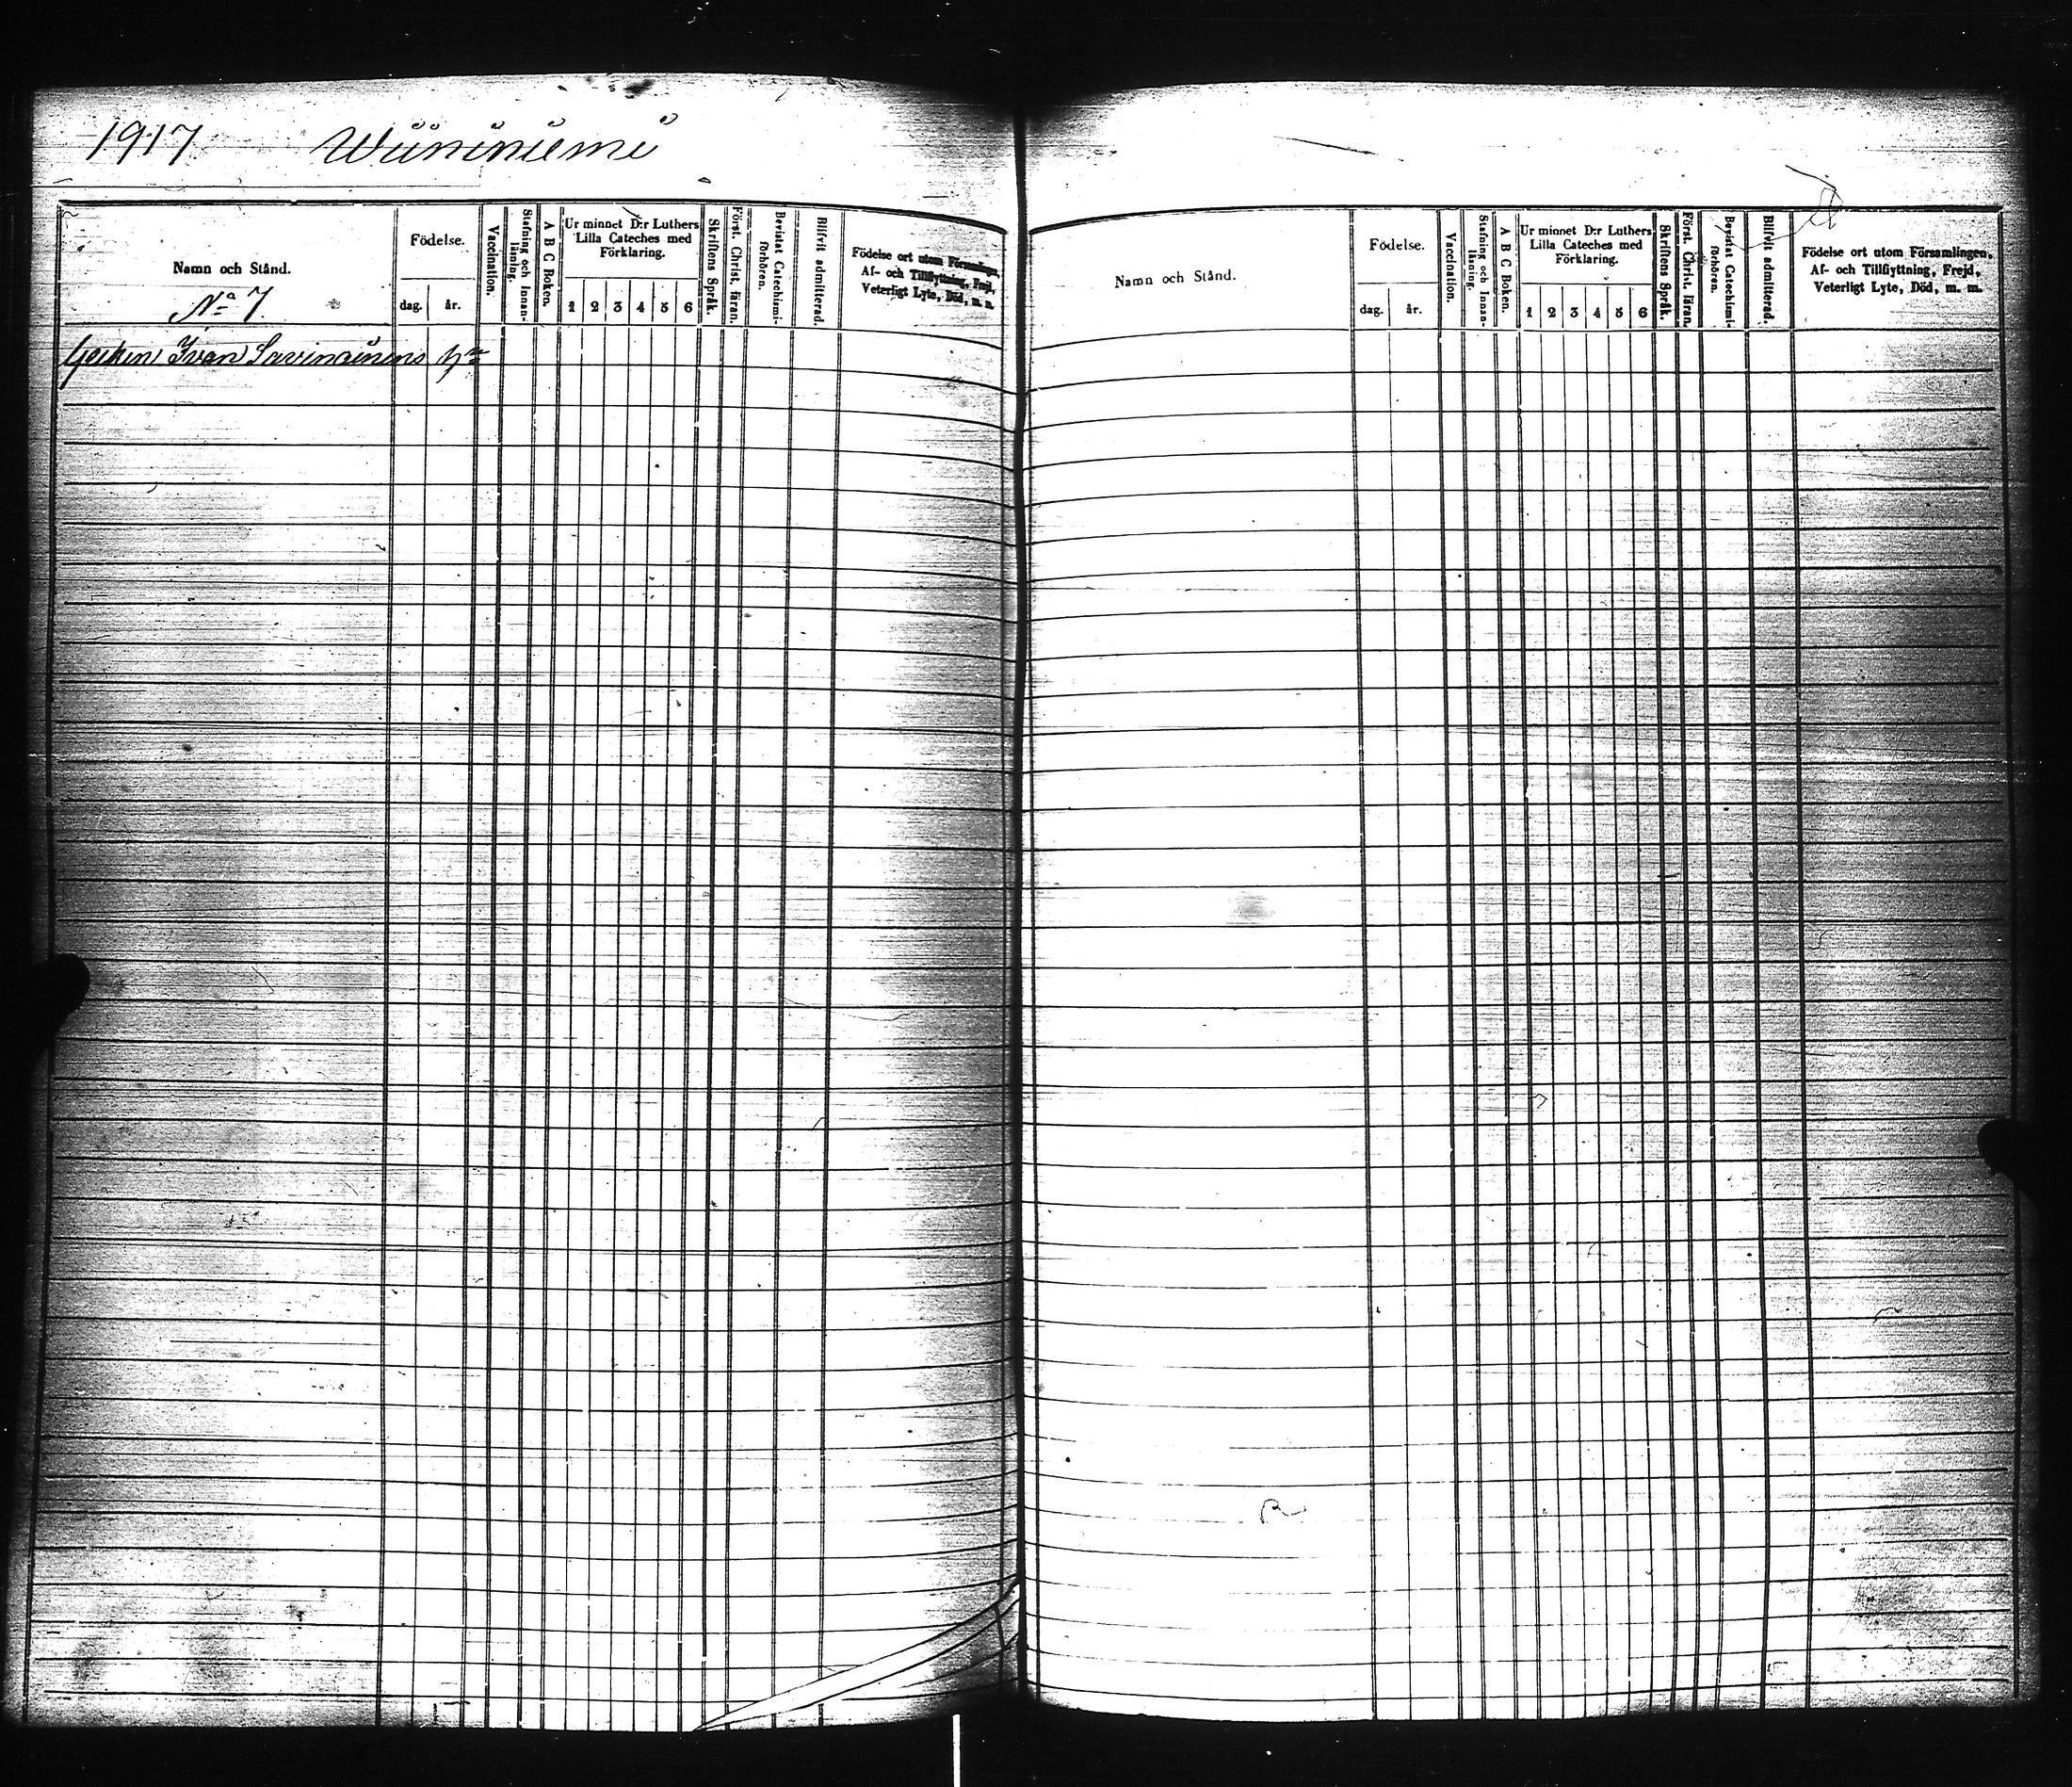 1917 Wiininiemi
Namn och Stånd.
No 7.
Födelse.
dag.
år.
Vaccination.
Stafning och Innan-
läsning.
A B C Boken.
Ur minnet D:r Luthers
Lilla Cateches med
Förklaring.
1 2 3 4 5 6
Skriftens Språk.
Först. Christ. läran.
Bevistat Catechismi-
förhören.
Blifvit admitterad.
Födelse ort utom Församlingen,
Af- och Tillflyttning, Frejd,
Veterligt Lyte, Död, m. m.
Ivan Savinainens
Namn och Stånd.
Födelse.
dag.
år.
Vaccination.
Stafning och Innan-
läsning.
A B C Boken.
Ur minnet D:r Luthers
Lilla Cateches med
Förklaring.
1 2 3 4 5 6
Skriftens Språk.
Först. Christ. läran.
Bevistat Catechismi-
förhören.
Blifvit admitterad.
Födelse ort utom Församlingen,
Af- och Tillflyttning, Frejd,
Veterligt Lyte, Död, m. m.